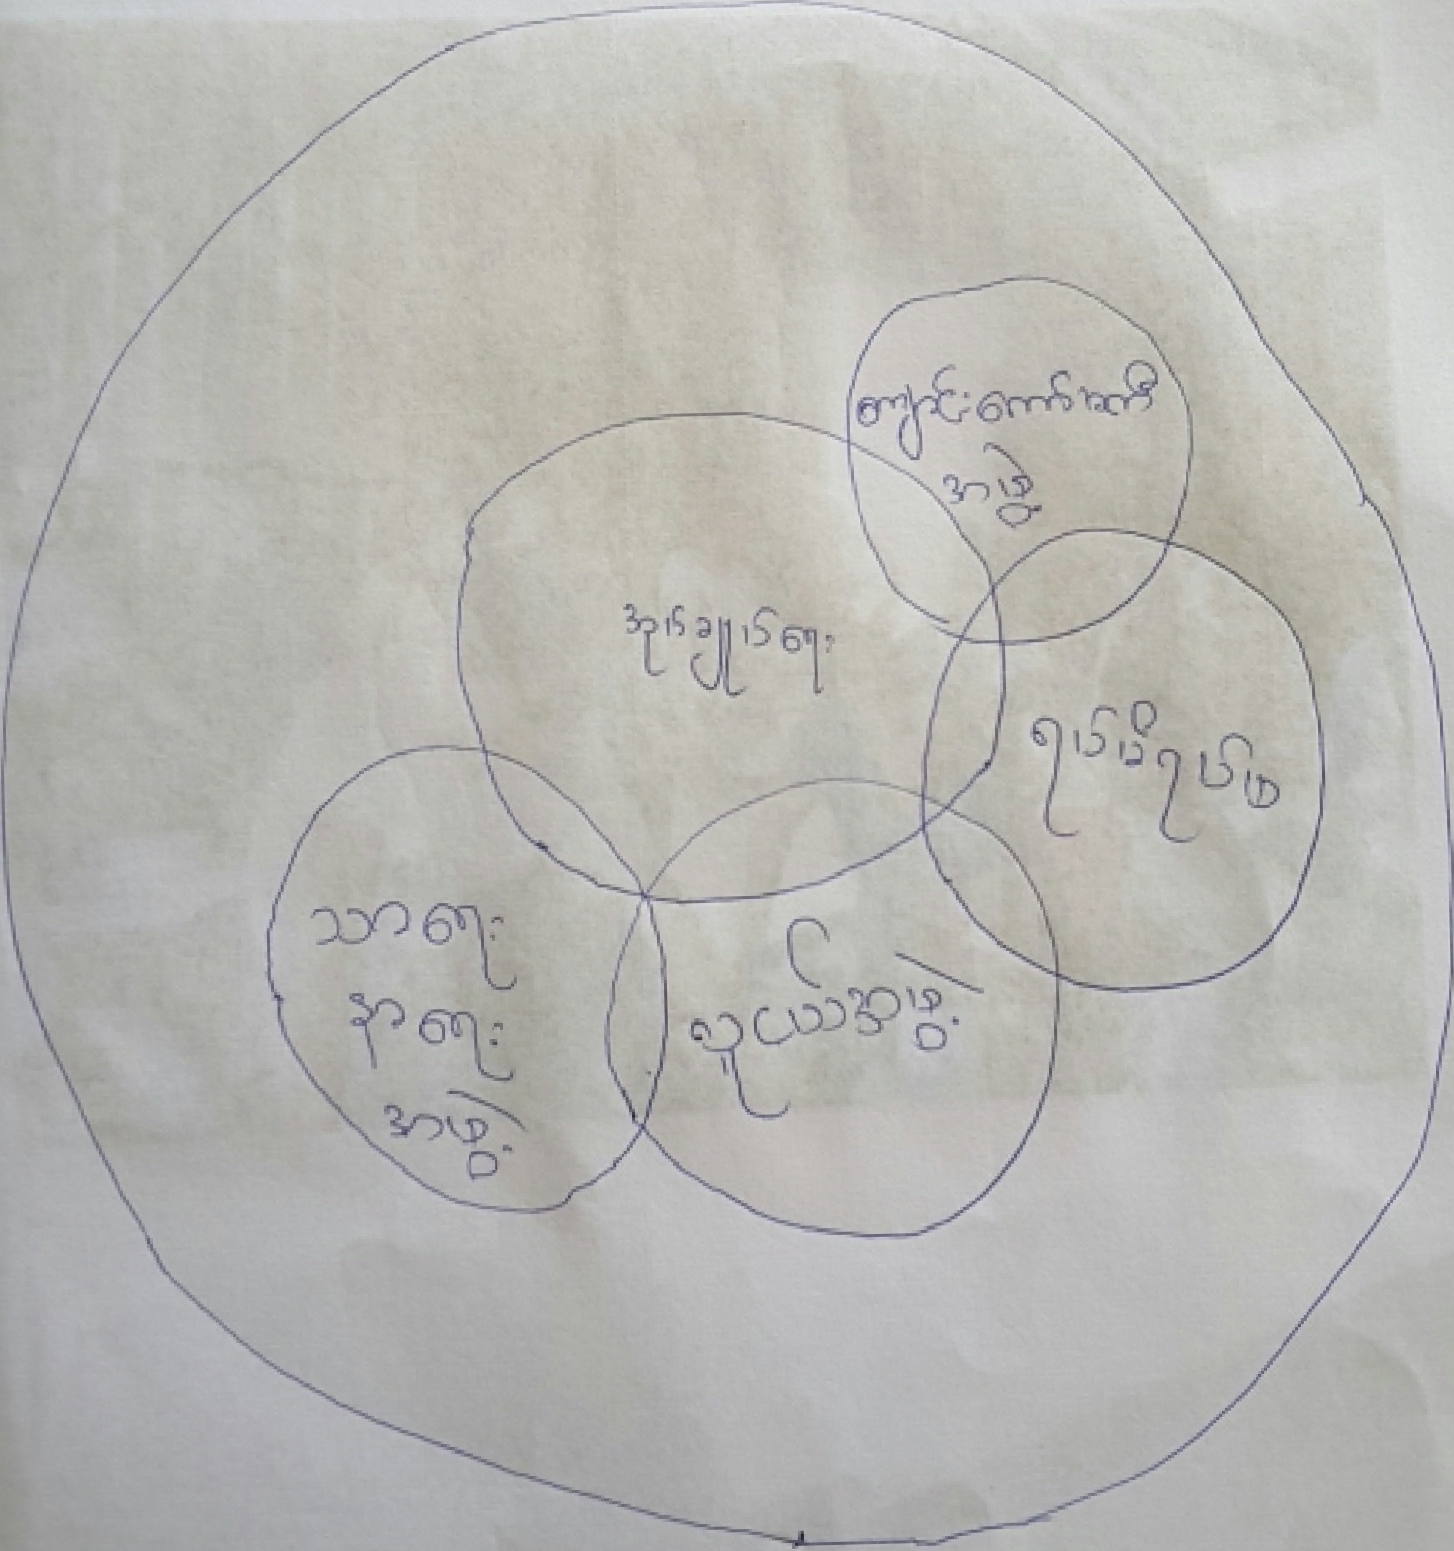 ကျောင်းကော်မတီ
အဖွဲ့
အုပ်ချုပ်ရေး
ရပ်မိရပ်ဖ
သာရေး
နာရေး
အဖွဲ့
လူငယ်အဖွဲ့